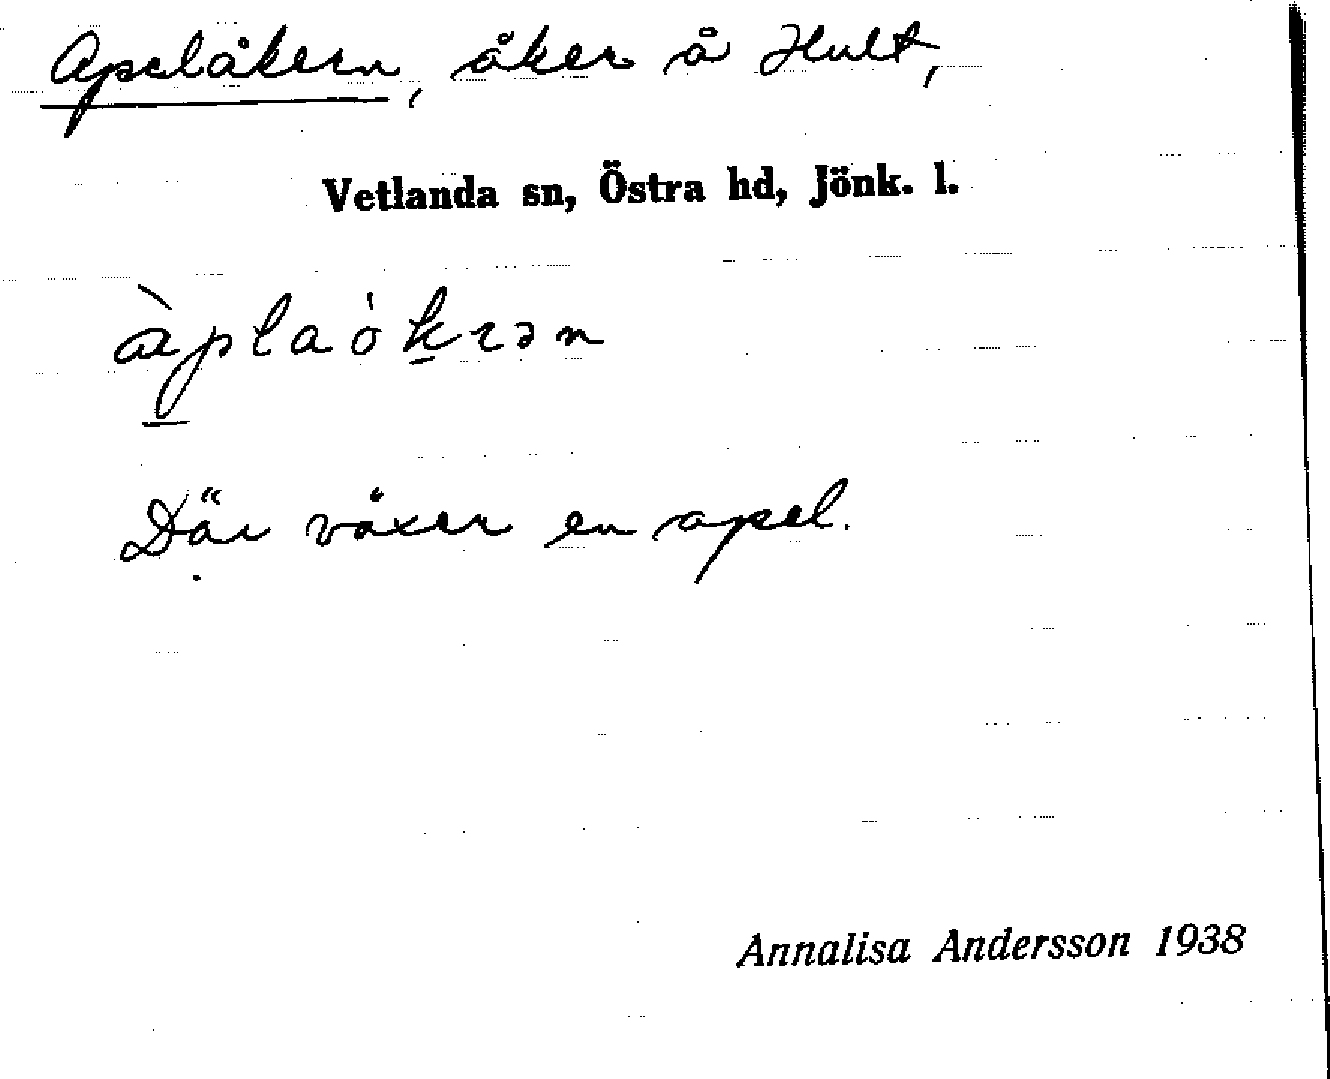 Apelåkern, åker å Hult,
Vetlanda sn, Östra hd, Jönk. l.
àplaókrən
Där växer en apel.
Annalisa Andersson 1938